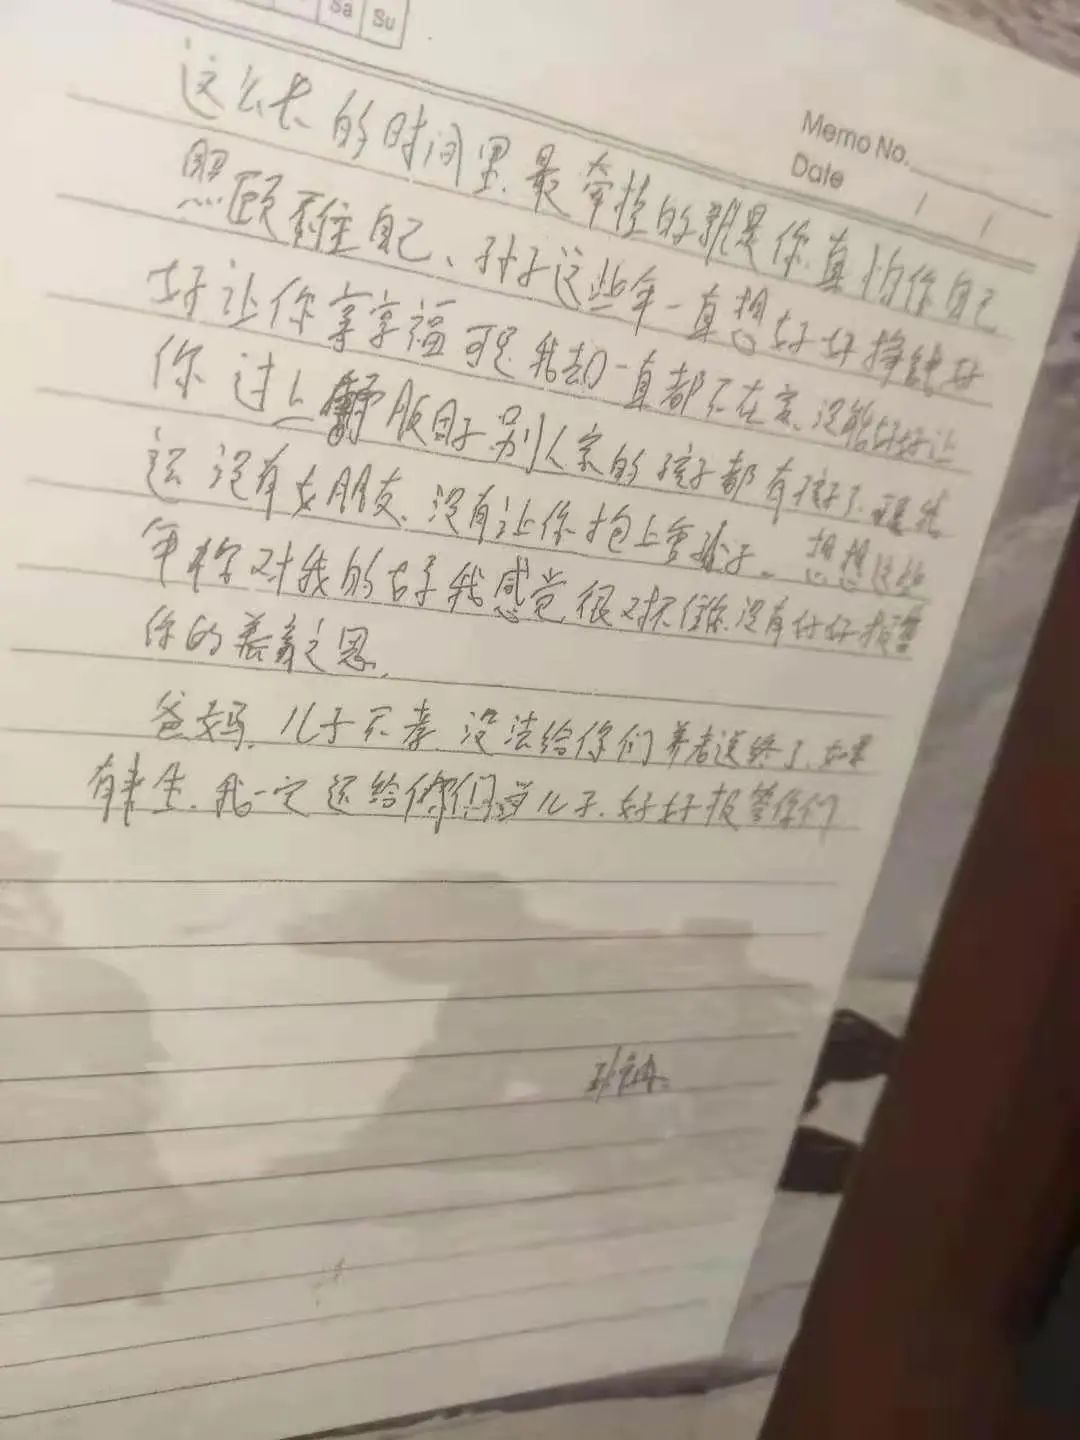 Sa Su
Memo No.
Date / /
这么长的时间里、最牵挂的就是你、真怕你自己
照顾不住自己、孙子这些年一直想好好挣钱好
好让你享享福可是我却一直都不在家、没能好好让
你过上舒服日子、别人家的孩子都有孩子了、可是我
还没有女朋友、没有让你抱上重孙子。想想这些
年你对我的好我感觉很对不住你、没有好好报答
你的养育之恩、
爸妈、儿子不孝、没法给你们养老送终了、如果
有来生、我一定还给你们当儿子、好好报答你们